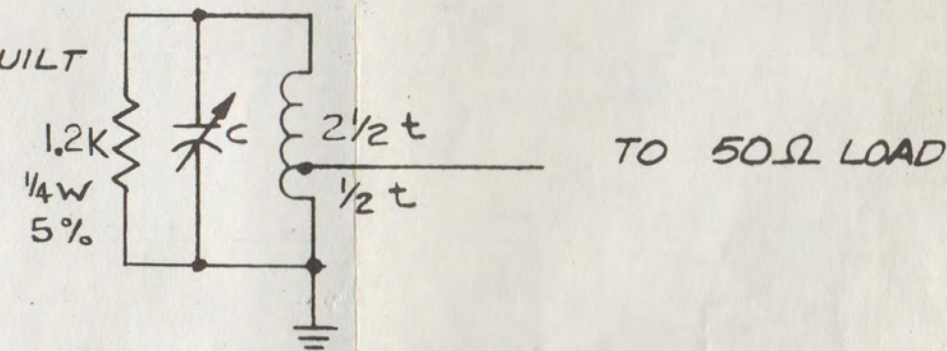 1.2K
1/4 W
5%
C
2 1/2 t
1/2 t
TO 50Ω LOAD